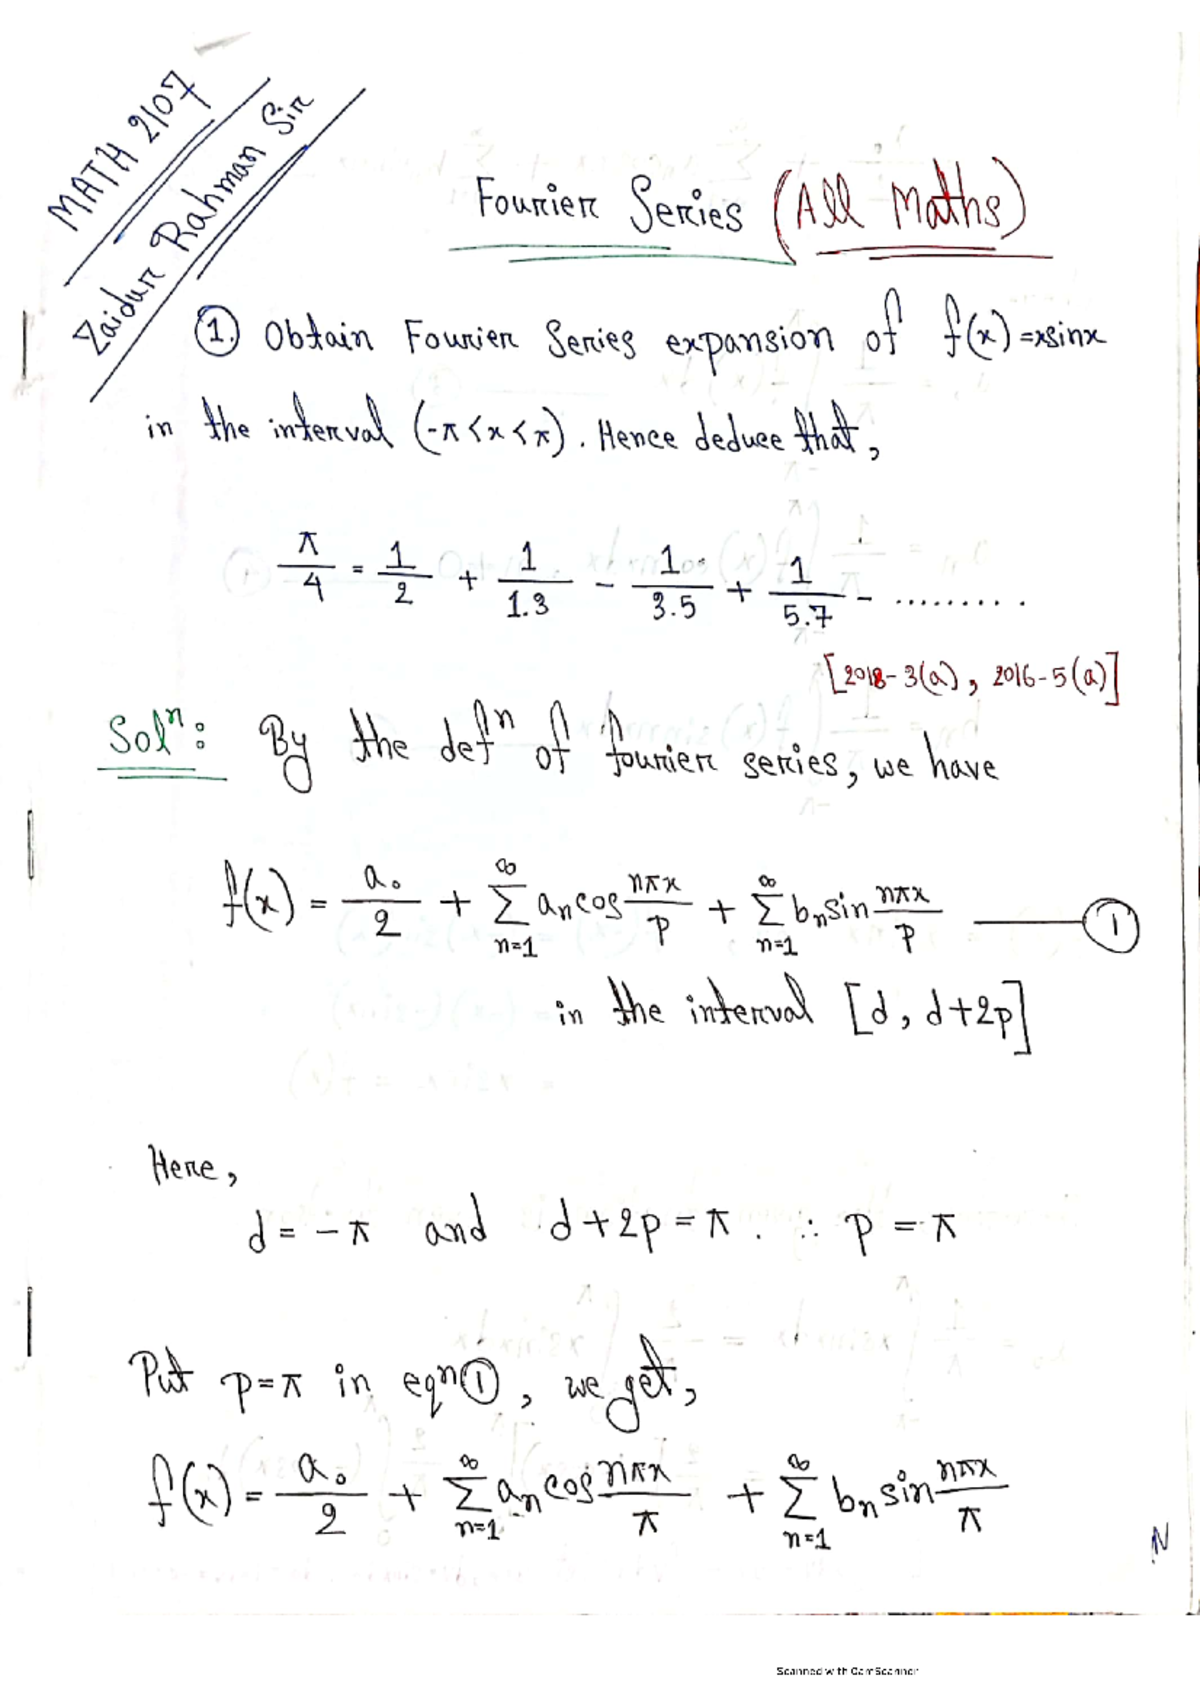 MATH 2107
Zaidur Rahman Sir
Fourier Series (All Maths)
1. Obtain Fourier Series expansion of f(x)=xsinx
in the interval (-π<x<π). Hence deduce that,
π/4 = 1/2 + 1/1.3 - 1/3.5 + 1/5.7 - .........
[2018-3(a), 2016-5(a)]
Solⁿ: By the defⁿ of fourier series, we have
f(x) = a₀/2 + ∞Σn=1 aₙcos nπx/p + ∞Σn=1 bₙsin nπx/p —— ①
in the interval [d, d+2p]
Here,
d = -π and d+2p = π. ∴ p = π
Put p=π in eqn①, we get,
f(x) = a₀/2 + ∞Σn=1 aₙcos nπx/π + ∞Σn=1 bₙsin nπx/π
N
Scanned with CamScanner